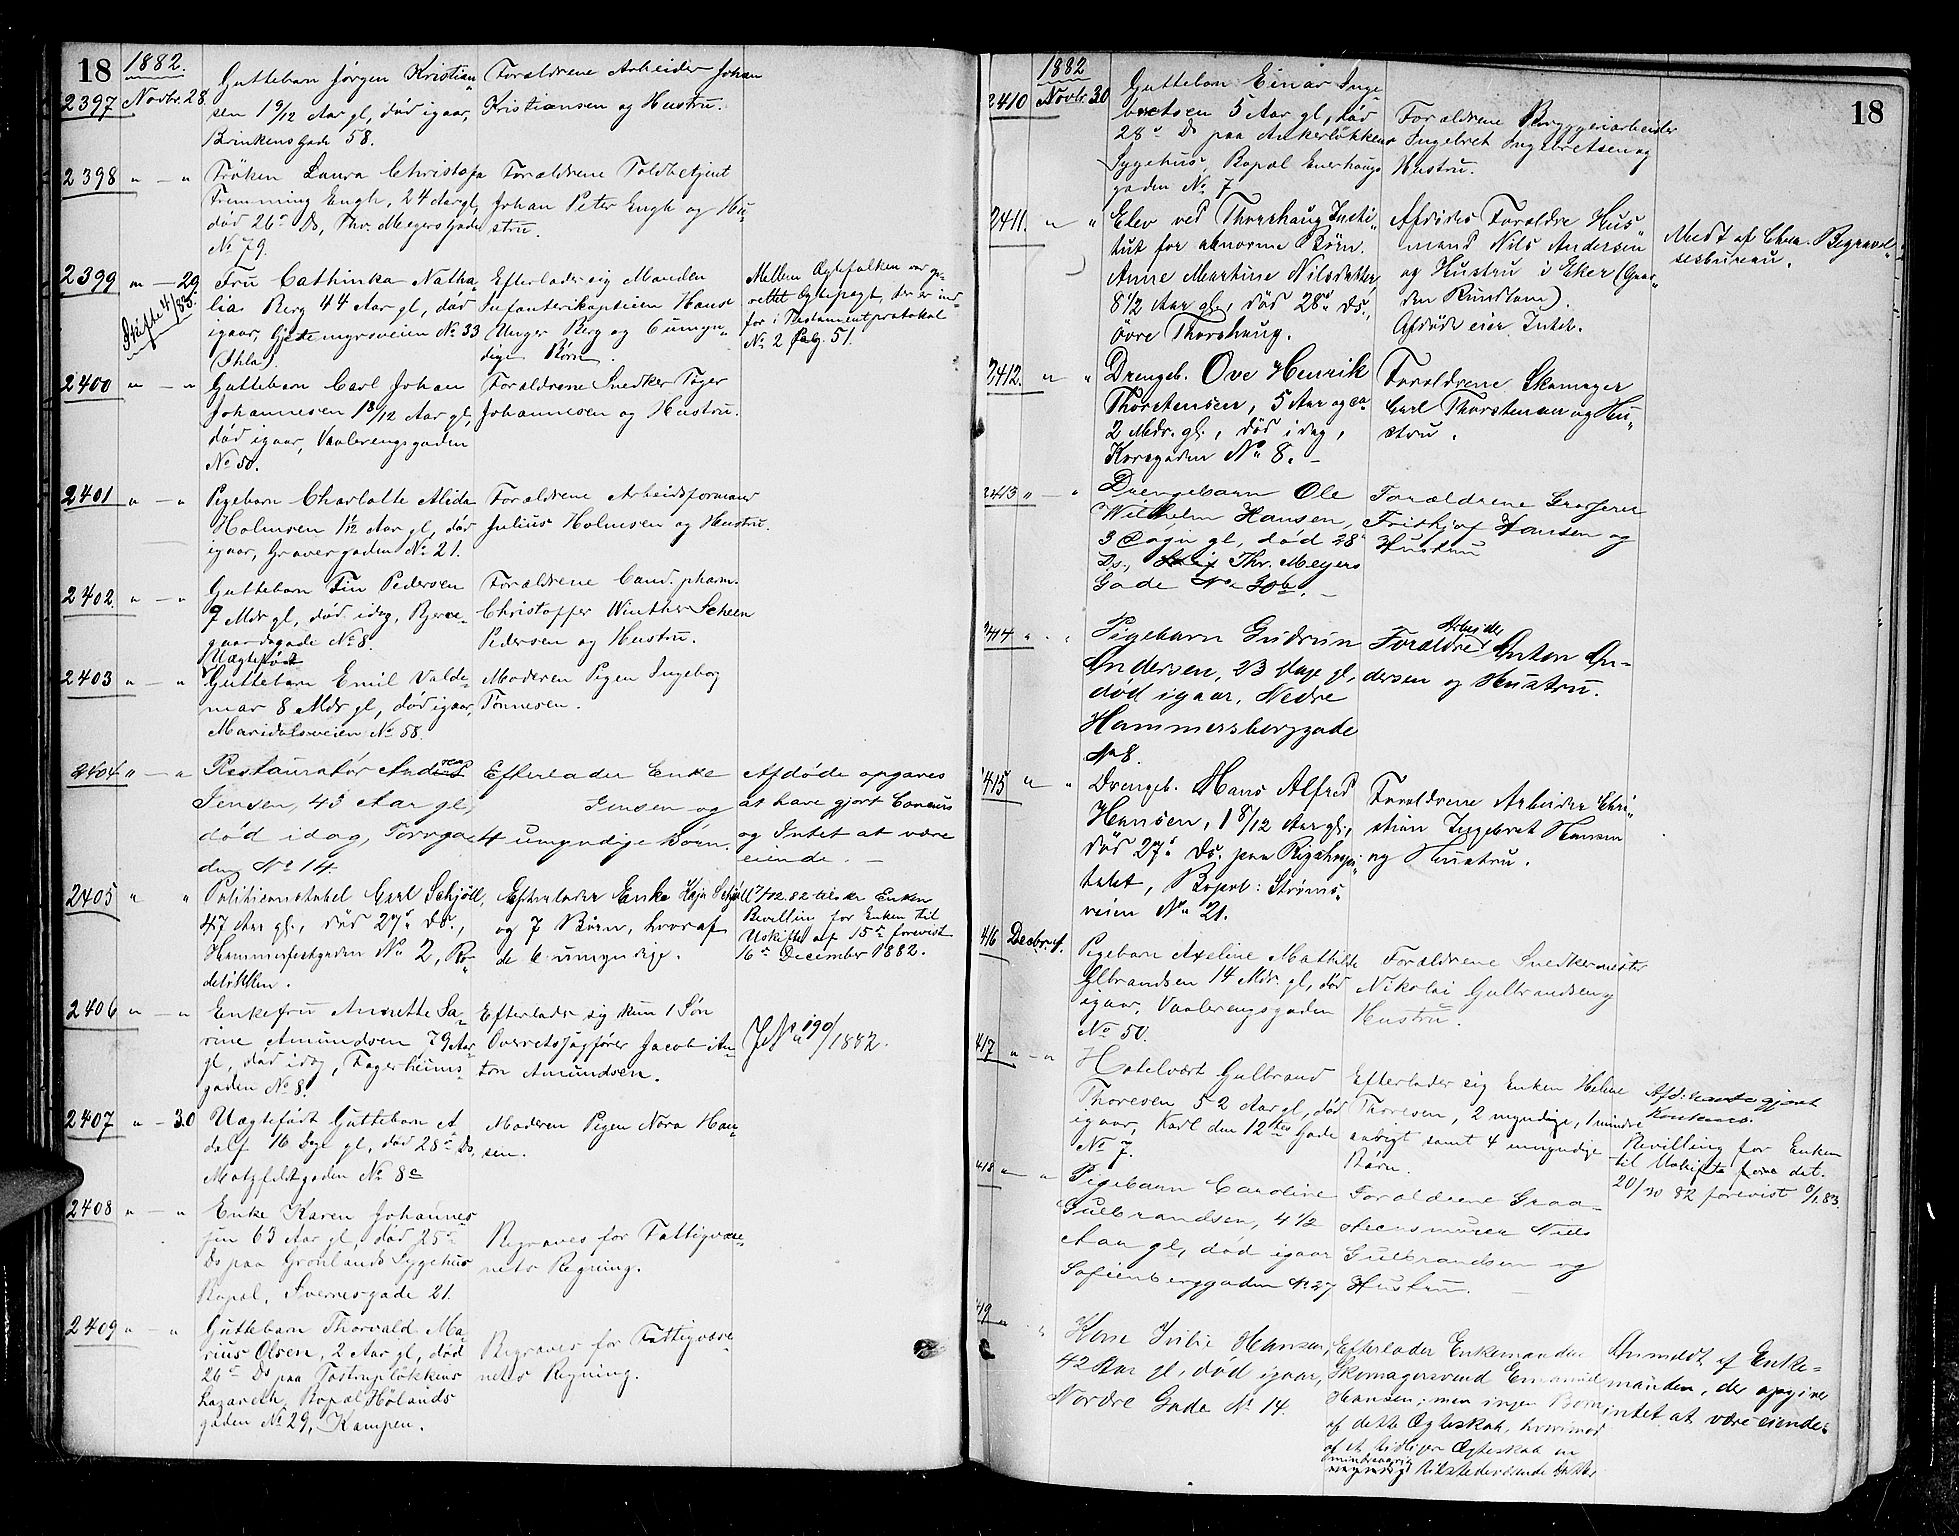 18
1882.
2397 Novbr. 28.
Guttebarn Jørgen Kristian„
sen 1 9/12 Aar gl, død igaar,
Brinkens Gade 58.
Forældrene Arbeider Johan
Kristiansen og Hustru.
2398 „ — „
Frøken Laura Christofa
Fremming Engh, 24 Aar gl,
død 26' Ds, Thv. Meyers Gade
No 79.
Forældrene Toldbetjent
Johan Peter Engh og Hu„
stru.
2399 „ — 29
Skifte 4/1 83.
Fru Cathinka Natha„
lia Berg 44 Aar gl, død
igaar, Gjetemyrsveien No 33
(Ihla).
Efterlader sig Manden
Infanterikaptein Hans
Unger Berg og 6 umyn„
dige Børn.
Mellem Ægtefolkene var op„
rettet Ægtepagt, der er ind„
ført i Testamentprotokol
No 2 Pag. 51.
2400 „ — „
Guttebarn Carl Johan
Johannesen 1 8/12 Aar gl,
død igaar, Vaalerengsgaden
No 50.
Forældrene Snedker Tøger
Johannesen og Hustru.
2401 „ — „
Pigebarn Charlotte Alida
Holmsen 1 1/2 Aar gl, død
igaar, Gravergaden No 21.
Forældrene Arbeidsformand
Julius Holmsen og Hustru.
2402. „ — „
Guttebarn Fin Pedersen
9 Mdr gl, død idag, Bjerre„
gaardsgade No 8.
Forældrene Cand. pharm.
Christoffer Winther Scheen
Pedersen og Hustru.
2403 „ — „
Uægtefødt
Guttebarn Emil Valde„
mar 8 Mdr gl, død igaar,
Maridalsveien No 58.
Moderen Pigen Ingeborg
Tønnesen.
2404 „ — „
Restauratør Andreas
Jensen, 45 Aar gl,
død idag, Torvga„
den No 14.
Efterlader Enke
Jensen og
4 umyndige Børn.
Afdøde opgaves
at have gjort Concurs
og Intet at være
eiende. —
2405 „ „
Politikonstabel Carl Schjøll,
47 Aar gl., død 27' Ds.,
Hammerfestgaden No 2, Ro„
deløkken.
Efterlader Enke Kaja Schjøll
og 7 Børn, hvoraf
de 6 umyndige.
7/12.82 tilstr. Enken
Bevilling for Enken til
Uskiftet af 15' forevist
16' December 1882.
2406 „ — „
Enkefru Anrette Sa„
rine Amundsen 79 Aar
gl, død idag, Fagerheims„
gaden No 8.
Efterlader sig kun 1 Søn
Overretssagfører Jacob An„
ton Amundsen.
J No 190/1882.
2407 „ — 30
Uægtefødt Guttebarn A„
dolf 16 Dage gl, død 28' Ds,
Motzfeldtgaden No 8c
Moderen Pigen Nora Han„
sen.
2408 „ — „
Enke Karen Johannes„
sen 63 Aar gl, død 25'
Ds paa Grønlands Sygehus
Bopæl, Sverresgade 21.
Begraves for Fattigvæse„
nets Regning.
2409 „ — „
Guttebarn Thorvald Ma„
rius Olsen, 2 Aar gl, død
26' Ds paa Tostrupløkkens
Lazareth, Bopæl Hølands„
gaden No 29, Kampen.
Begraves for Fattigvæse„
nets Regning.
1882
18
2410 Novbr. 30
Guttebarn Einar Inge„
bretsen 5 Aar gl, død
28' Ds paa Ankerløkkens
Sygehus, Bopæl Enerhaugs
gaden No 7
Forældrene Bryggeriarbeider
Ingebret Ingebretsen og
Hustru.
2411. „ „
Elev ved Thorshaug Insti„
tut for abnorme Børn.
Anne Martine Nilsdatter,
8 1/2 Aar gl., død 28' Ds.,
Øvre Thorshaug.
Afdødes Forældre Hus„
mand Nils Andersen
og Hustru i Eker (Gaar„
den Rundtom).
Afdøde eier Intet.
Meldt af Chra. Begravel„
sesbureau.
2412. „ „
Drengeb. Ove Henrik
Thorstensen, 5 Aar og ca
2 Mdr. gl., død idag,
Korsgaden No 8. —
Forældrene Skomager
Carl Thorstensen og Hu„
stru.
2413 „ — „
Drengebarn Ole
Wilhelm Hansen,
3 Dage gl, død 28'
Ds., Thv. Meyers
Gade No 30b. —
Forældrene Grosserer
Frithjof Hansen og
Hustru
2414 „ . „
Pigebarn Gudrun
Andersen, 23 Dage gl,
død igaar, Nedre
Hammersborggade
No 8.
Forældre Arbeider Anton An„
dersen og Hustru.
2415 „ „
Drengeb. Hans Alfred
Hansen, 1 8/12 Aar gl.,
død 27' Ds. paa Rigshospi„
talet, Bopæl: Strøms„
veien No 21.
Forældrene Arbeider Chri„
stian Ingebret Hansen
og Hustru.
416 Decbr. 1.
Pigebarn Axeline Mathilde
Gulbrandsen 14 Mdr. gl, død
igaar, Vaalerengsgaden
No 50.
Forældrene Snedkermester
Nikolai Gulbrandsen og
Hustru.
417 „ — „
Hotelvært Gulbrand
Thoresen 52 Aar gl, død
igaar, Karl den 12tes Gade
No 7.
Efterlader sig Enken Helene
Thoresen, 2 myndige, 1 mindre„
aarigt samt 4 umyndige
Børn.
Afd. havde gjort
Konkurs.
Bevilling for Enken
til Uskifte det.
20/12 82 forevist 5/1 83.
418 „ „
Pigebarn Caroline
Gulbrandsen, 4 1/2
Aar gl, død igaar
Sofienberggaden No 27
Forældrene Graa„
stensmurer Niels
Gulbrandsen og
Hustru.
419 „ „
Kone Julie Hansen,
42 Aar gl, død igaar,
Nordre Gade No 14.
Efterlader Enkemanden
Skomagersvend Emanuel
Hansen; men ingen Børn
af dette Ægteskab, hvorimod
af et tidligere Ægteskab en
mindreaarig tilstedeværende
Anmeldt af Enke„
manden, der opgiver
intet at være eiende.